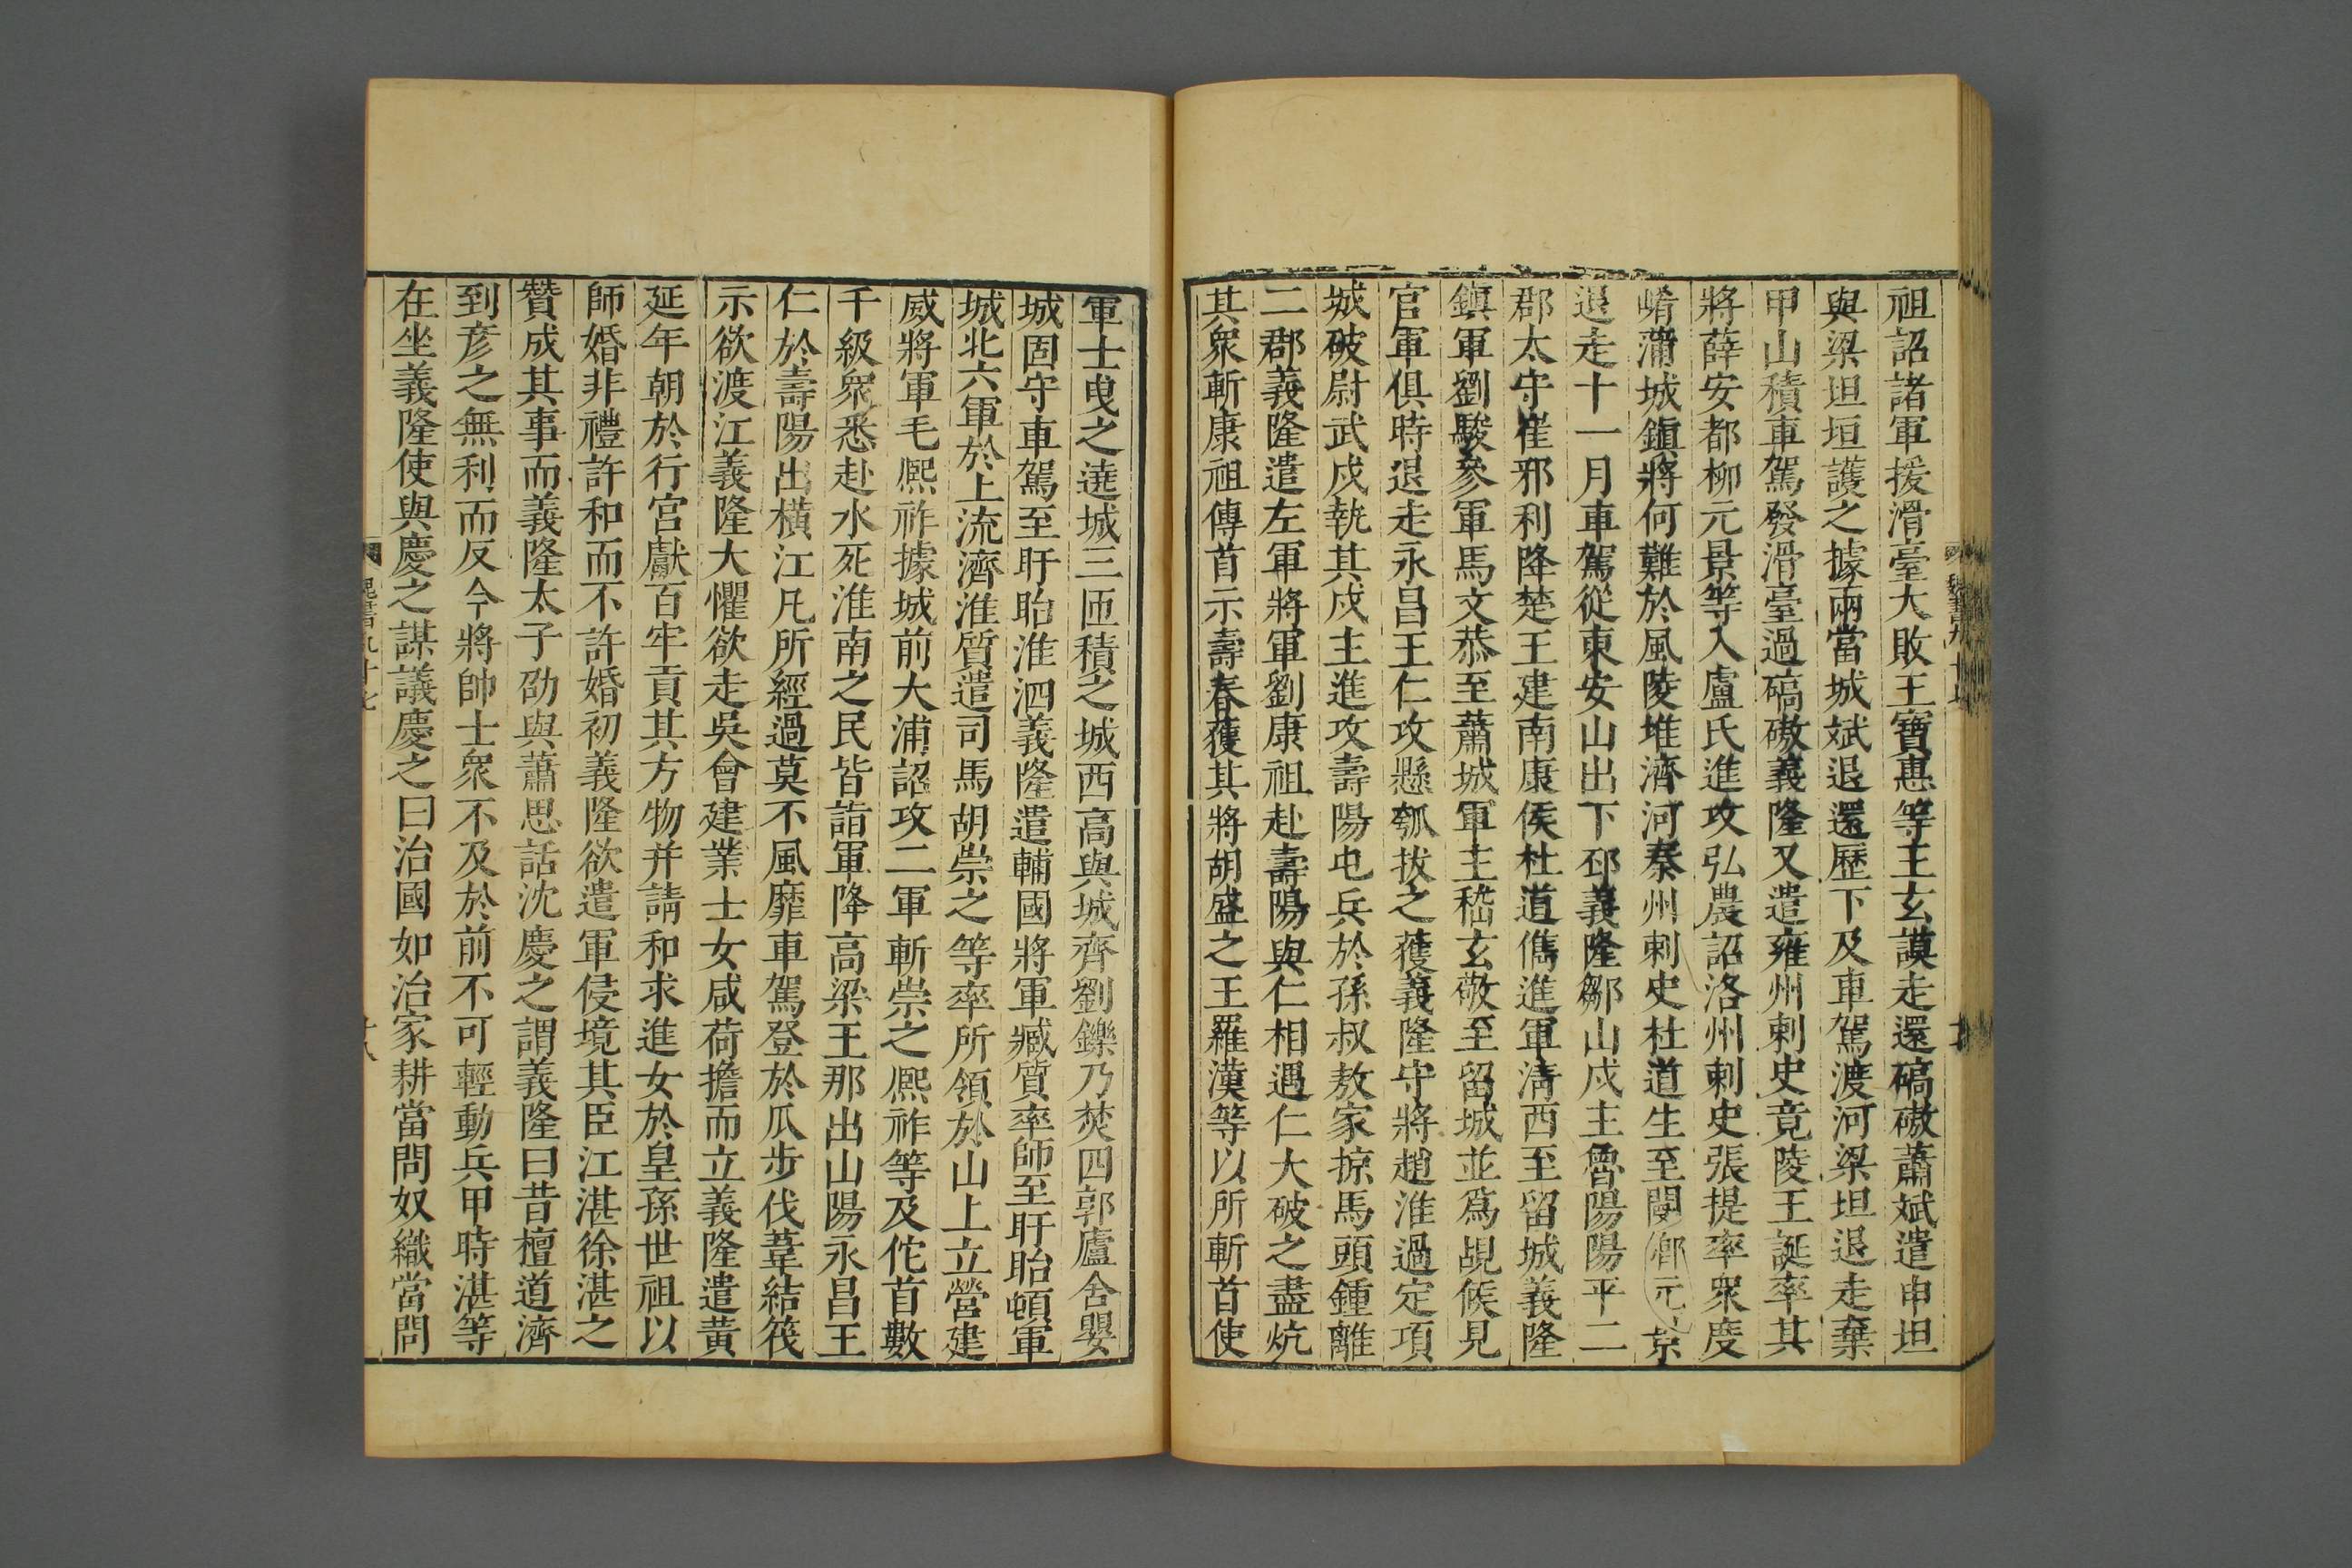 祖詔諸軍援滑臺大敗王寶惠等王玄謨走還碻磝蕭斌遣申坦
與梁坦垣護之據兩當城斌退還歷下及車駕渡河梁坦退走棄
甲山積車駕發滑臺過碻磝義隆又遣雍州刺史竟陵王誕率其
將薛安都柳元景等入盧氏進攻弘農詔洛州刺史張提率衆度
崤蒲城鎭將何難於風陵堆濟河秦州刺史杜道生至閿鄉元景
退走十一月車駕從東安山出下邳義隆鄒山戍主魯陽陽平二
郡太守崔邪利降楚王建南康侯杜道儁進軍淸西至留城義隆
鎭軍劉駿參軍馬文恭至蕭城軍主嵇玄敬至留城並爲覘候見
官軍俱時退走永昌王仁攻懸瓠拔之獲義隆守將趙淮過定項
城破尉武戍執其戍主進攻壽陽屯兵於孫叔敖冢掠馬頭鍾離
二郡義隆遣左軍將軍劉康祖赴壽陽與仁相遇仁大破之盡炕
其衆斬康祖傳首示壽春獲其將胡盛之王羅漢等以所斬首使
軍士曳之遶城三匝積之城西高與城齊劉鑠乃焚四郭廬舍嬰
城固守車駕至盱眙淮泗義隆遣輔國將軍臧質率師至盱眙頓軍
城北六軍於上流濟淮質遣司馬胡崇之等率所領於山上立營建
威將軍毛熙祚據城前大浦詔攻二軍斬崇之熙祚等及佗首數
千級衆悉赴水死淮南之民皆詣軍降高梁王那出山陽永昌王
仁於壽陽出橫江凡所經過莫不風靡車駕登於瓜步伐葦結筏
示欲渡江義隆大懼欲走吳會建業士女咸荷擔而立義隆遣黃
延年朝於行宮獻百牢貢其方物并請和求進女於皇孫世祖以
師婚非禮許和而不許婚初義隆欲遣軍侵境其臣江湛徐湛之
贊成其事而義隆太子劭與蕭思話沈慶之謂義隆曰昔檀道濟
到彥之無利而反今將帥士衆不及於前不可輕動兵甲時湛等
在坐義隆使與慶之謀議慶之曰治國如治家耕當問奴織當問
魏書九十七
十八